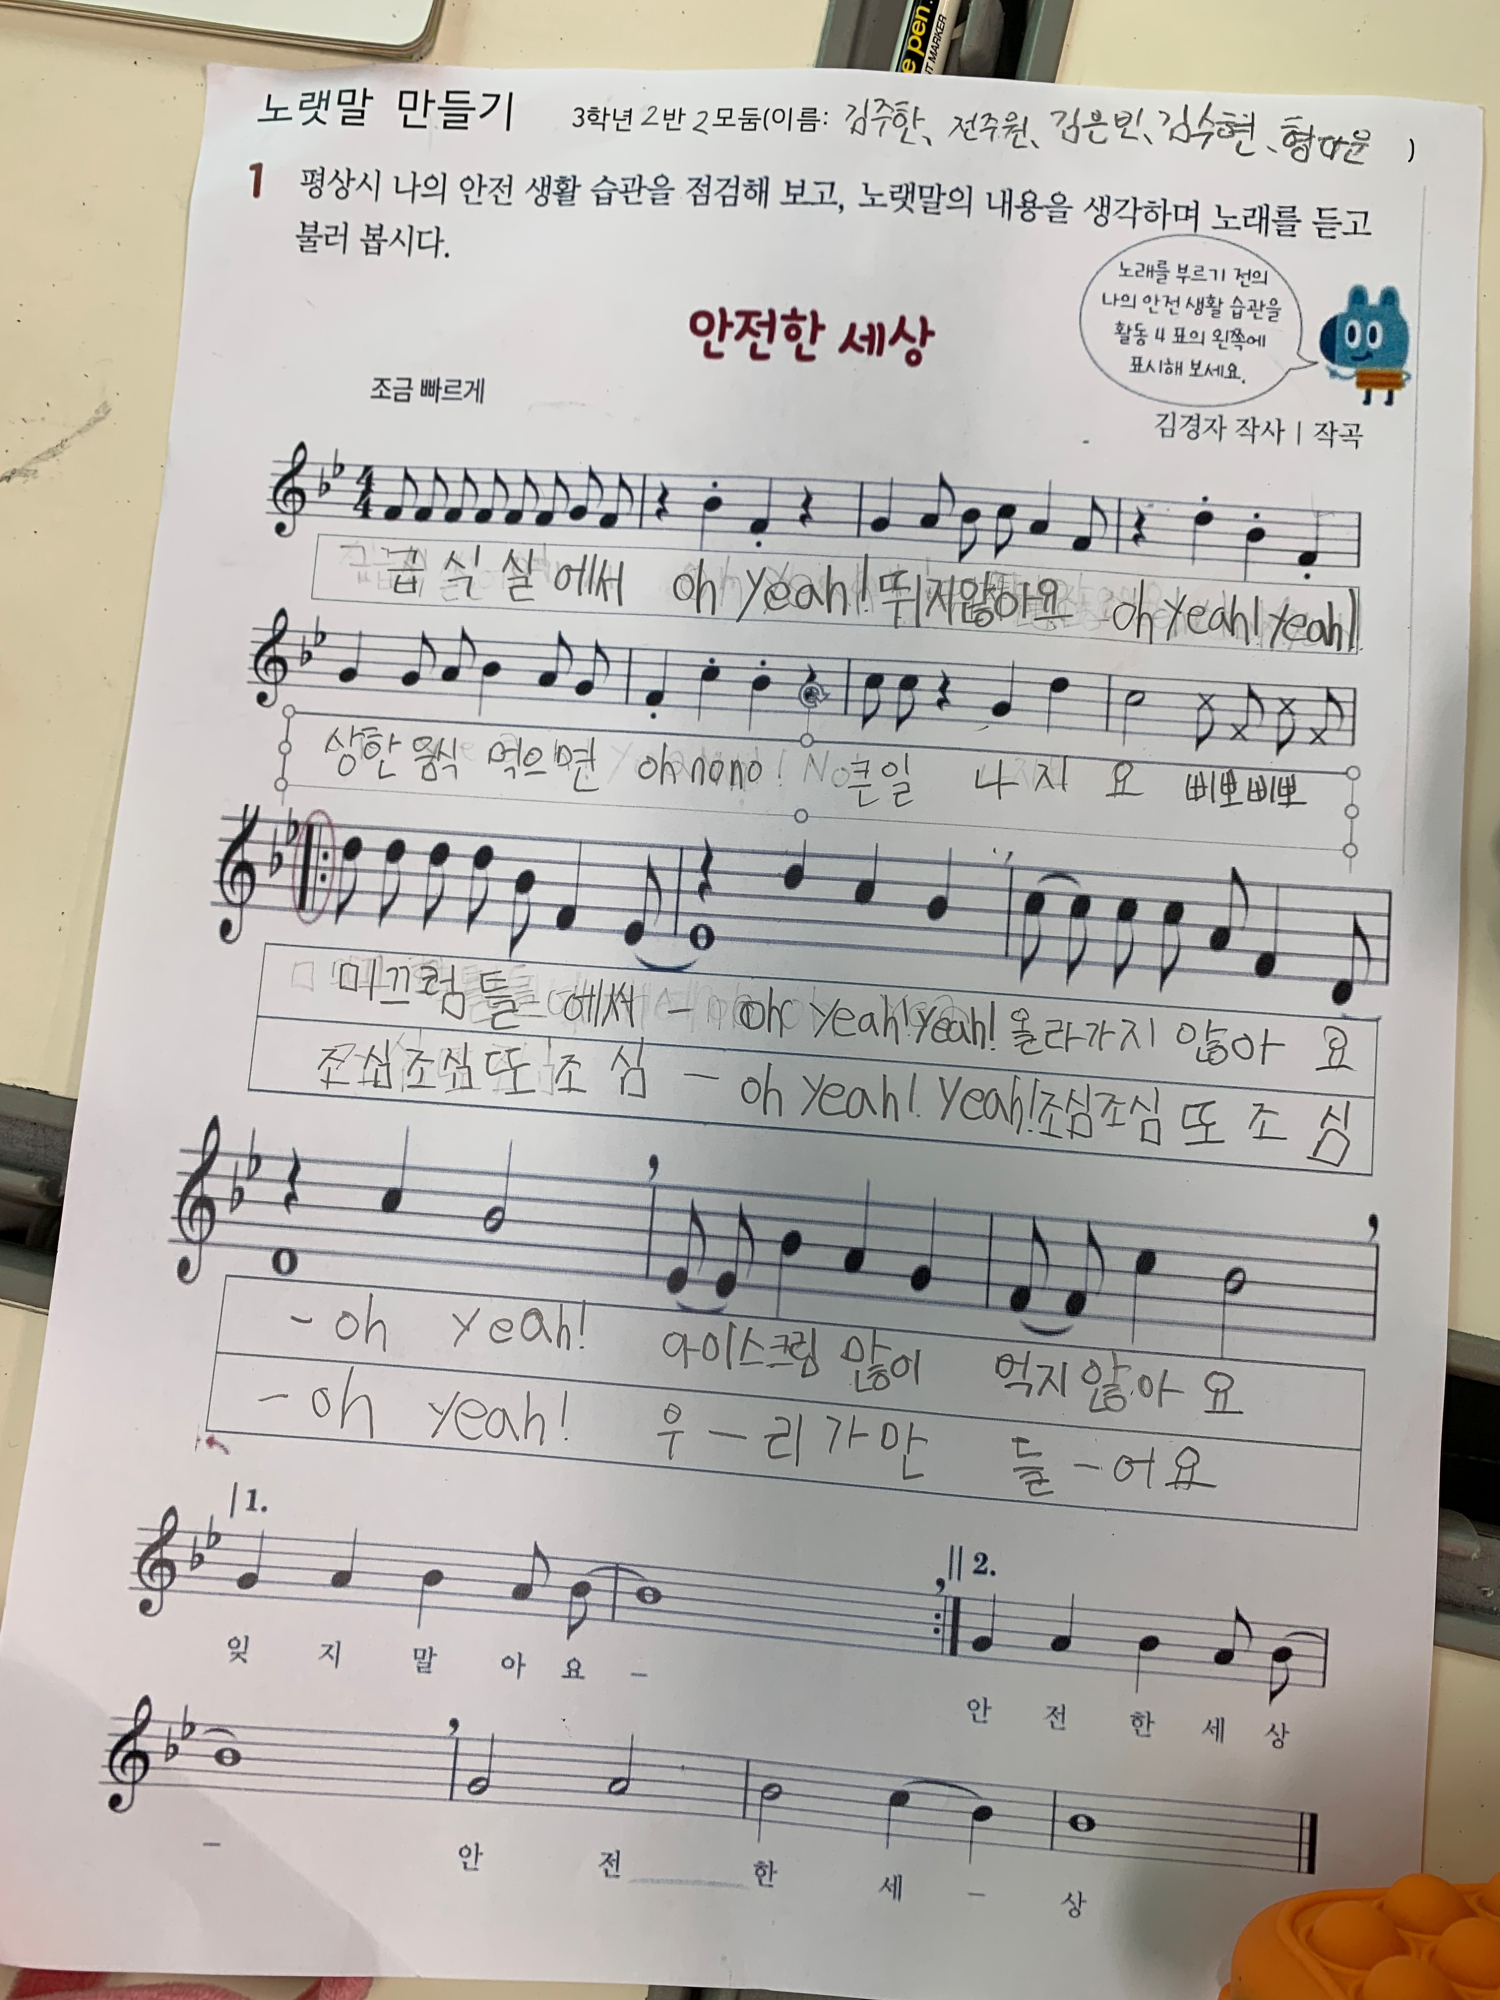 노랫말 만들기 3학년 2반 2모둠(이름: 김주한, 전주원, 김은빈, 김수현, 형다운 )
1 평상시 나의 안전 생활 습관을 점검해 보고, 노랫말의 내용을 생각하며 노래를 듣고
불러 봅시다.
노래를 부르기 전의
나의 안전 생활 습관을
활동 4 표의 왼쪽에
표시해 보세요.
안전한 세상
조금 빠르게
김경자 작사 | 작곡
급식실에서 oh yeah! 뛰지않아요 oh yeah! yeah!
상한 음식 먹으면 oh no no! 큰일 나지요 삐뽀삐뽀
미끄럼틀 에서 - oh yeah! yeah! 올라가지 않아요
조심조심또조심 - oh yeah! yeah! 조심조심또조심
- oh yeah! 아이스크림 많이 먹지않아요
- oh yeah! 우-리가만 들-어요
1.
2.
잊 지 말 아 요 -
안 전 한 세 상
- 안 전 한 세 - 상